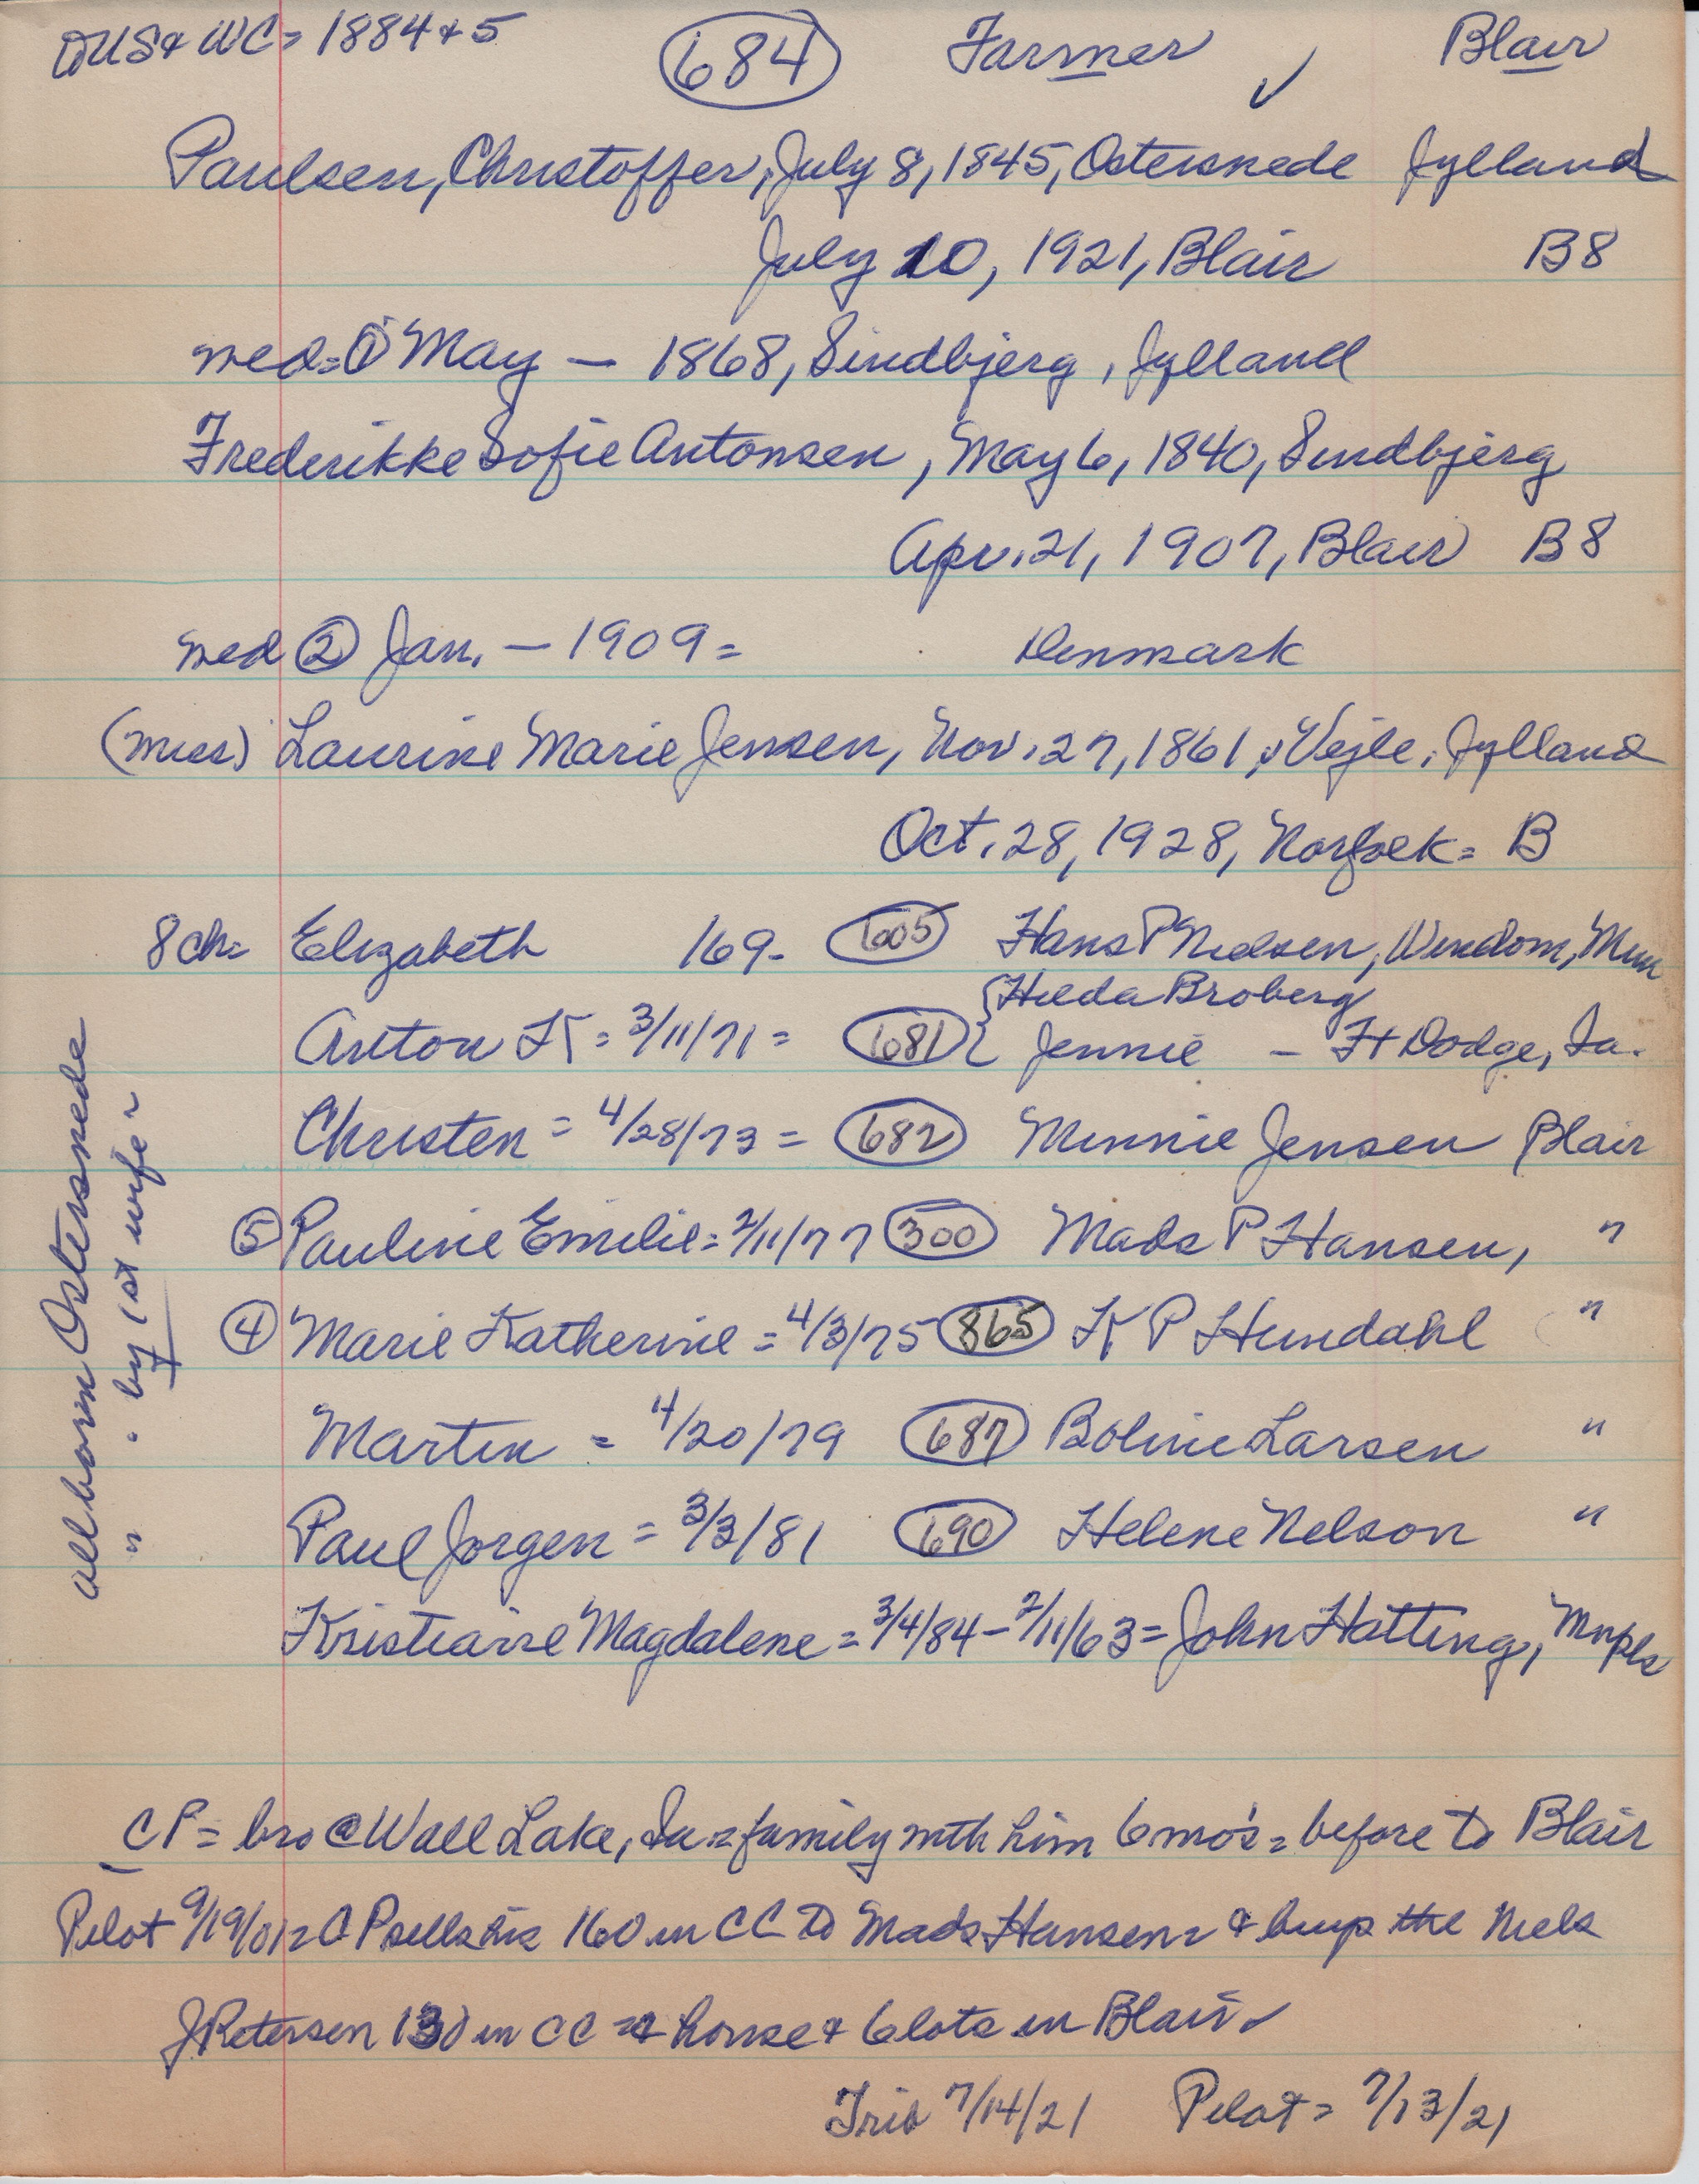 DUS & WC = 1884 & 5 684 Farmer ✓ Blair
Paulsen, Christoffer, July 8, 1845, Ostersnede Jylland
July 10, 1921, Blair B8
med = ① May — 1868, Sindbjerg, Jylland
Frederikke Sofie Antonsen, May 6, 1840, Sindbjerg
Apr. 21, 1907, Blair B8
med ② Jan. — 1909 = Denmark
(miss) Laurine Marie Jensen, Nov. 27, 1861, Vejle, Jylland
Oct. 28, 1928, Norfolk = B
8 ch = Elizabeth 169 - 605 Hans P Nielsen, Windom, Minn
{Hilda Broberg
Anton K = 3/11/71 = 681 { Jennie — Ft Dodge, Ia.
Christen = 4/28/73 = 682 Minnie Jensen Blair
⑤ Pauline Emilie = 2/11/77 300 Mads P Hansen, "
④ Marie Katherine = 4/3/75 865 K P Hundahl "
Martin = 4/20/79 687 Boline Larsen "
Paul Jorgen = 3/3/81 690 Helene Nelson "
Kristiane Magdalene = 3/4/84 - 2/11/63 = John Hatting, Mnpls
all born Ostersnede
" " by 1st wife
CP = bro @ Wall Lake, Ia = family with him 6 mo's = before to Blair
Pilot 9/19/01 = C P sells his 160 in CC to Mads Hansen = & buys the Niels
J Petersen 130 in CC = & house & 6 lots in Blair ✓
Trib 7/14/21 Pilot = 7/13/21